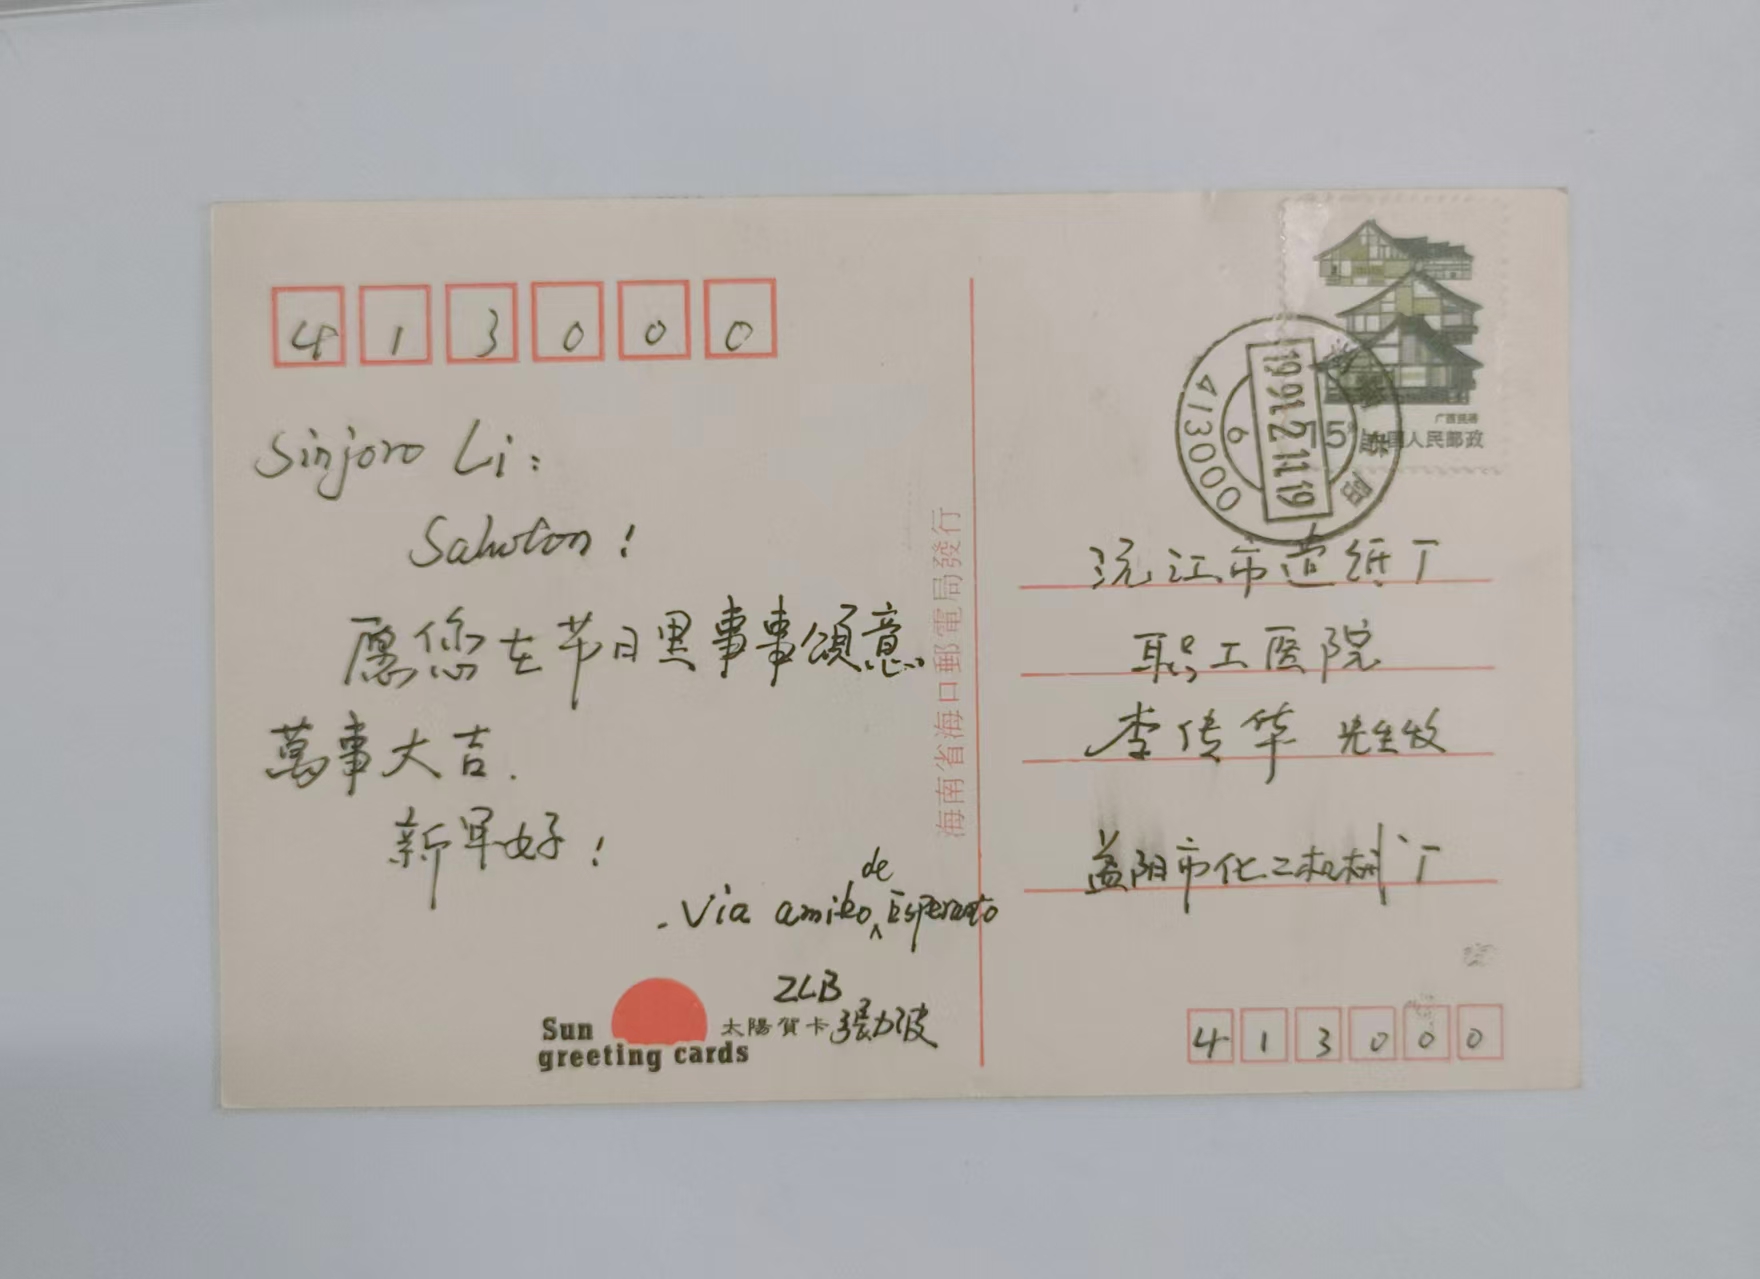 413000
Sinjoro Li:
Saluton!
愿您在节日里事事顺意
萬事大吉.
新年好!
-Via amiko de Esperanto
ZLB
張力波
Sun
greeting cards
太陽賀卡
海南省海口郵電局發行
广西民居
15
中国人民邮政
1991.2.11.19
413000
6
沅江市造纸厂
职工医院
李传华 先生收
益阳市化工机械厂
413000